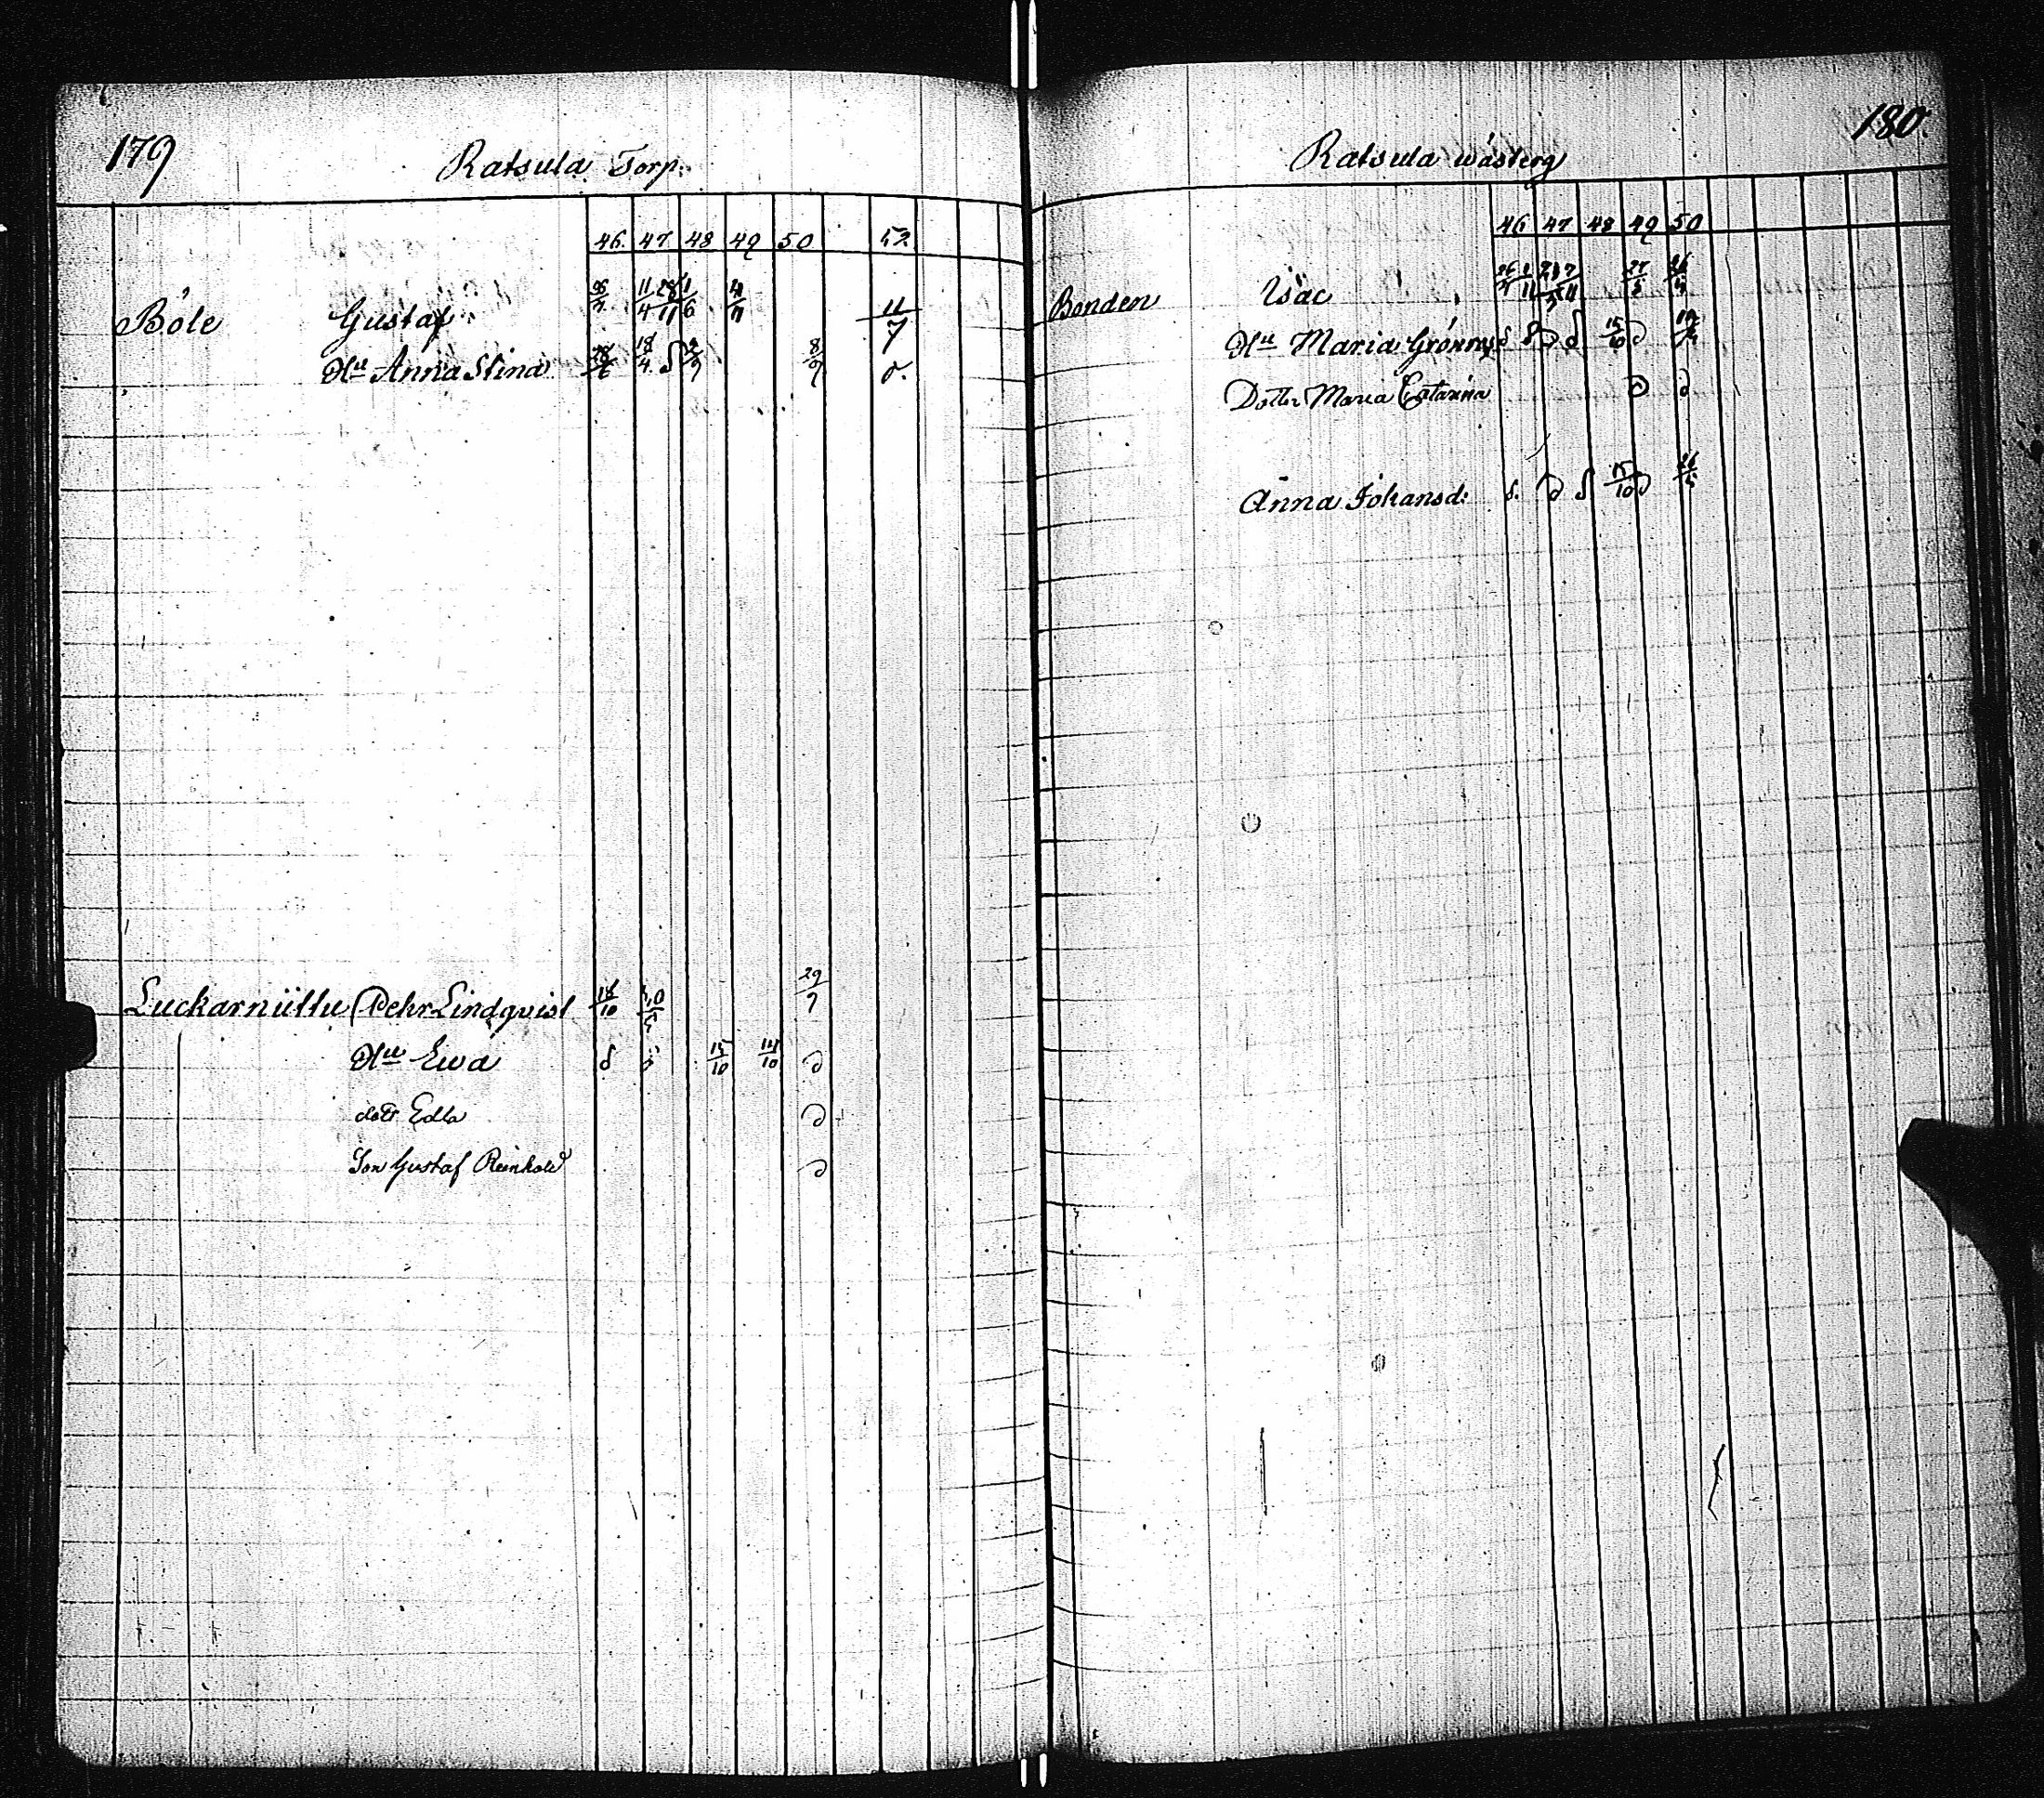 179
Ratsula Torp.
46. 47 48 49 50 52
Böle Gustaf 11/4 28/11 1/6 11/7
Hu Anna Stina 18/4 8/9 d.
29/7
Luckarniittu Pehr Lindqvist 18/10
Hu Ewa d d 15/10 14/10 d
dotr Edla d
Son Gustaf Reinhold d
180.
Ratsula wästerg
46 47 48 49 50
Bonden Isac
Hu Maria Grönros d d d d 15/10 d
Dotter Maria Catarina d d
Anna Johansd: d. d d 15/10 d